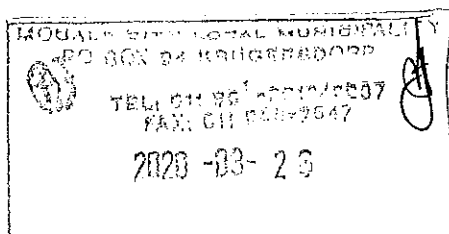 MOGALE CITY LOCAL MUNICIPALITY
PO BOX 94 KRUGERSDORP
TEL: 011
FAX: 011
2020 -03- 26